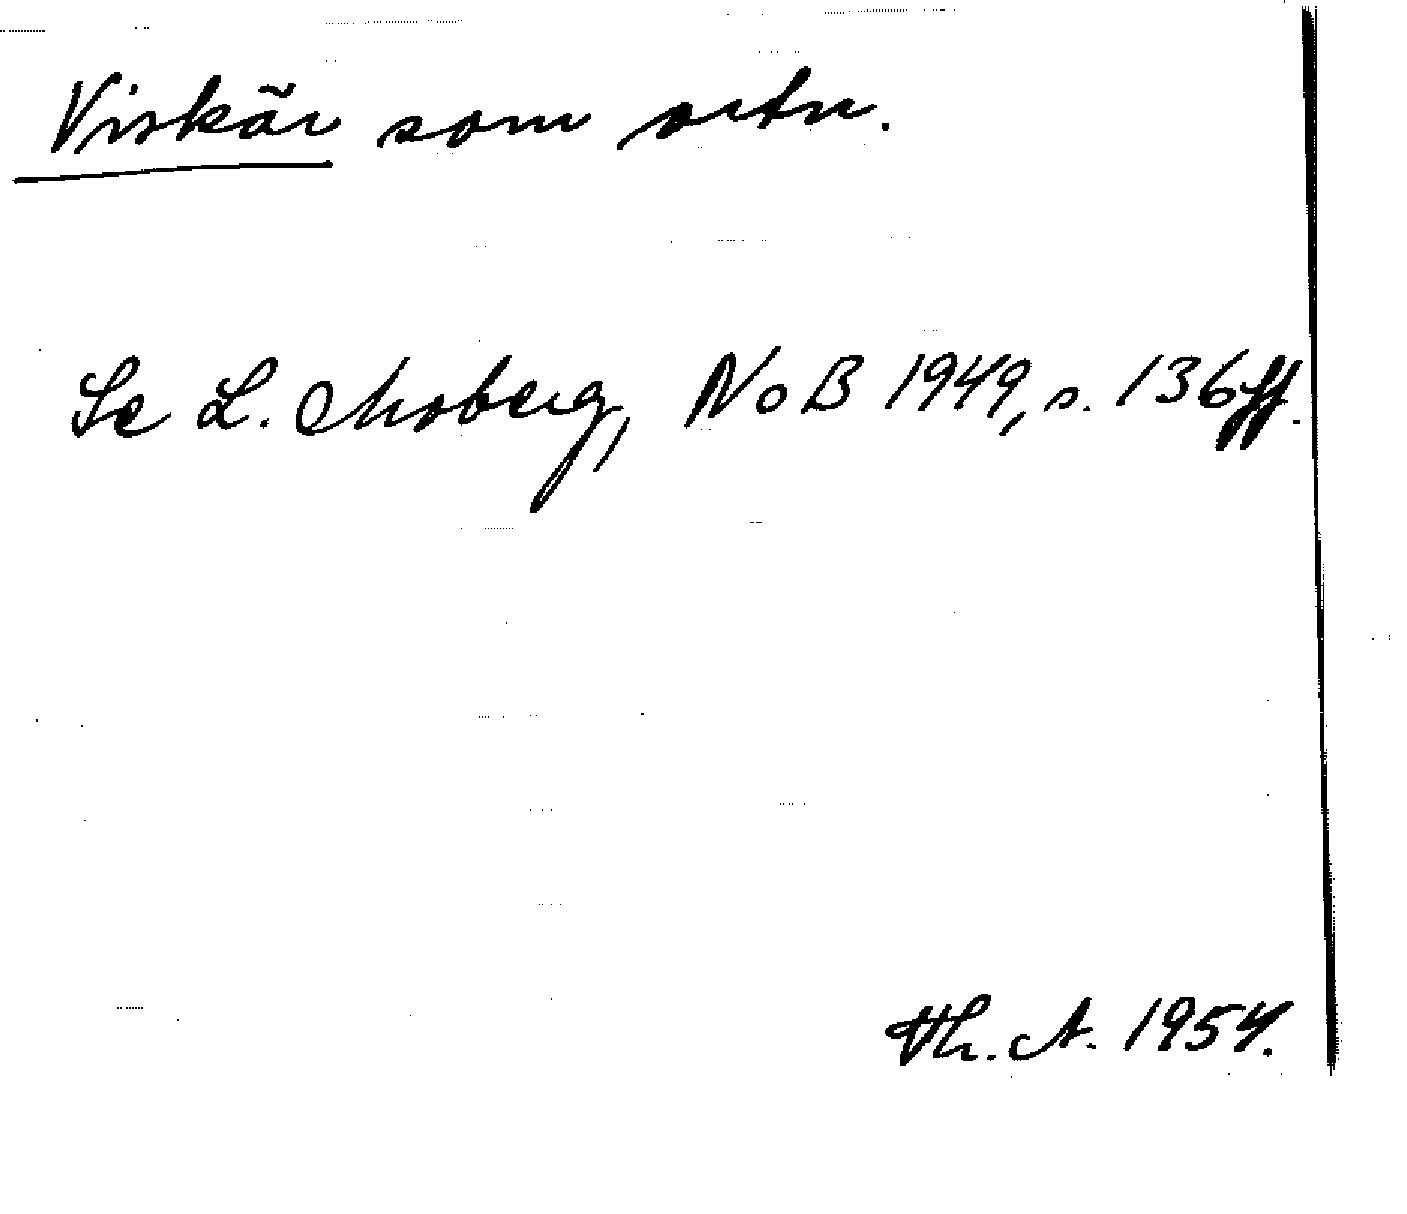 Viskär som ortn.
Se L. Moberg, NoB 1949, s. 136ff.
Th. A. 1954.